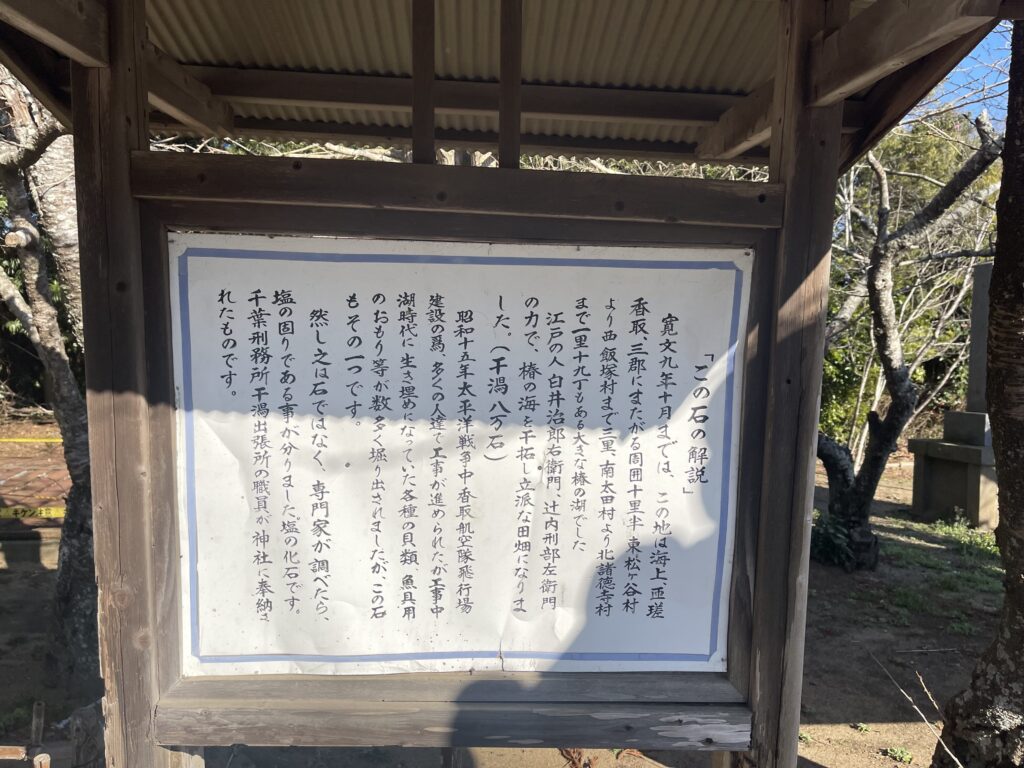 「この石の解説」
寛文九年十月までは、この地は海上、匝瑳
香取、三郡にまたがる周囲十里半、東松ヶ谷村
より西飯塚村まで三里、南太田村より北諸徳寺村
まで一里十九丁もある大きな椿の湖でした
江戸の人 白井治郎右衛門、辻内刑部左衛門
の力で、椿の海を干拓し立派な田畑になりま
した。(干潟八万石)
昭和十五年太平洋戦争中香取航空隊飛行場
建設の爲、多くの人達で工事が進められたが工事中
湖時代に生き埋めになっていた各種の貝類、魚具用
のおもり等が数多く堀り出されましたが、この石
もその一つです。
然し之は石ではなく、専門家が調べたら、
塩の固りである事が分りました塩の化石です。
千葉刑務所干潟出張所の職員が神社に奉納さ
れたものです。
キケン